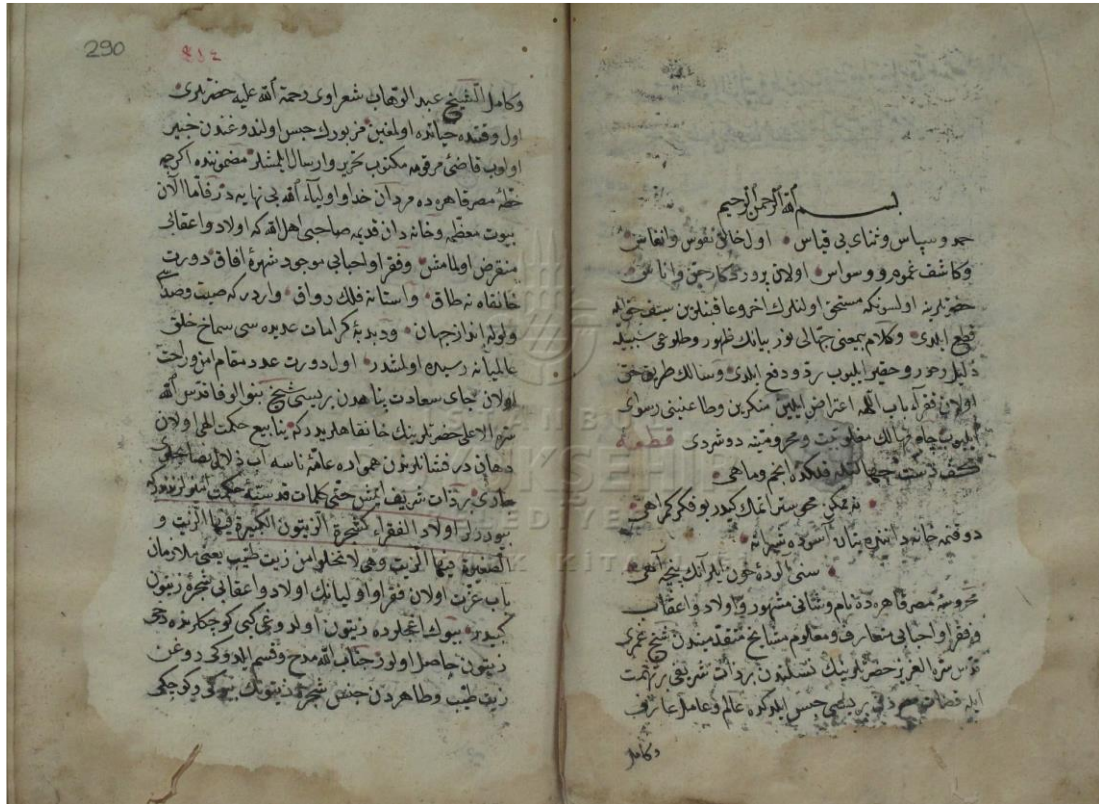 بسم الله الرحمن الرحيم
حمد وسپاس وثنای بی قیاس اول خالق نفوس وانفاس
وكاشف غموم ووسواس اولان پروردكار جن واناس
حضرتلرینه اولسونكه مستحق اولنلرك اخر وعاقبتلرین سیف
قطع ایلدی وكلام بمعنی جمالی نور بیانك ظهور وطلوعی سببیله
ذلیل وحقیر ایلیوب رد ودفع ایلدی وسالك طریق حق
اولان فقرآء باب اللهه اعتراض ایلین منكرین وطاعنینی رسوای
ایلیوب چاه مغلوبیت ومحرومیته دوشردی قطعه
فلكده انجم وماهی
نه ممكن محو ستر ایتمك كیدر بو فكر كمراهی
دوقنمه خانه آسوده شیرانه
سنی آلوده خون ایلر آنك پنجه
محروسه مصر قاهره ده نام وشانی مشهور واولاد واعقاب
وفقرا واحبابی متعارف ومعلوم مشایخ متقدمیندن شیخ غمری
قدس سره العزیز حضرتلرینك نسلندن بر ذات شریفی بر تهمت
ایله قضات مصردن بریسی حبس ایلدكده عالم وعامل عارف
وكامل
290
وكامل الشیخ عبد الوهاب شعراوی رحمة الله علیه حضرتلری
اول وقتده حیاتده اولغین مزبورك حبس اولندوغندن خبیر
اولوب قاضئ مرقومه مكتوب تحریر وارسال ایلمشلر مضموننده اكرچه
خطه مصر قاهره ده مردان خدا واولیآء الله بی نهایه در فاما الآن
بیوت معظمه وخانه دان قدیمه صاحبی اهل الله كه اولاد واعقابی
منقرض اولمامش وفقرا واحبابی موجود شهره آفاق دورت
خانقاه نه طاق وآستانه فلك رواق واردر كه صیت وصداسی
ولوله انداز جهان ودبدبه كرامات عدیده سی سماخ خلق
عالمیانه رسیده اولمشدر اول دورت عدد مقام امن وراحت
اولان جای سعادت پناهدن بریسی شیخ بنو الوفا قدس الله
سره الاعلی حضرتلرینك خانقاهلریدر كه ینابیع حكمت الهی اولان
دهان در فشانلرندن همواره عامه ناسه آب زلال
جاری بر ذات شریف ایمش حتی كلمات قدسیه
بیوررلر اولاد الفقراء كشجرة الزیتون الكبیرة فیها الزیت و
الصغیرة فیها الزیت وهی لا تخلو من زیت طیب یعنی ملازمان
باب عزت اولان فقرا واولیانك اولاد واعقابی شجره زیتون
كبیدر بیوك اغجلرده زیتون اولدوغی كبی كوچكلرنده دخی
زیتون حاصل اولور جناب الله مدح وقسم ایلدوكی روغن
زیت طیب وطاهردن جنس شجره زیتونك بیوكی وكوچكی